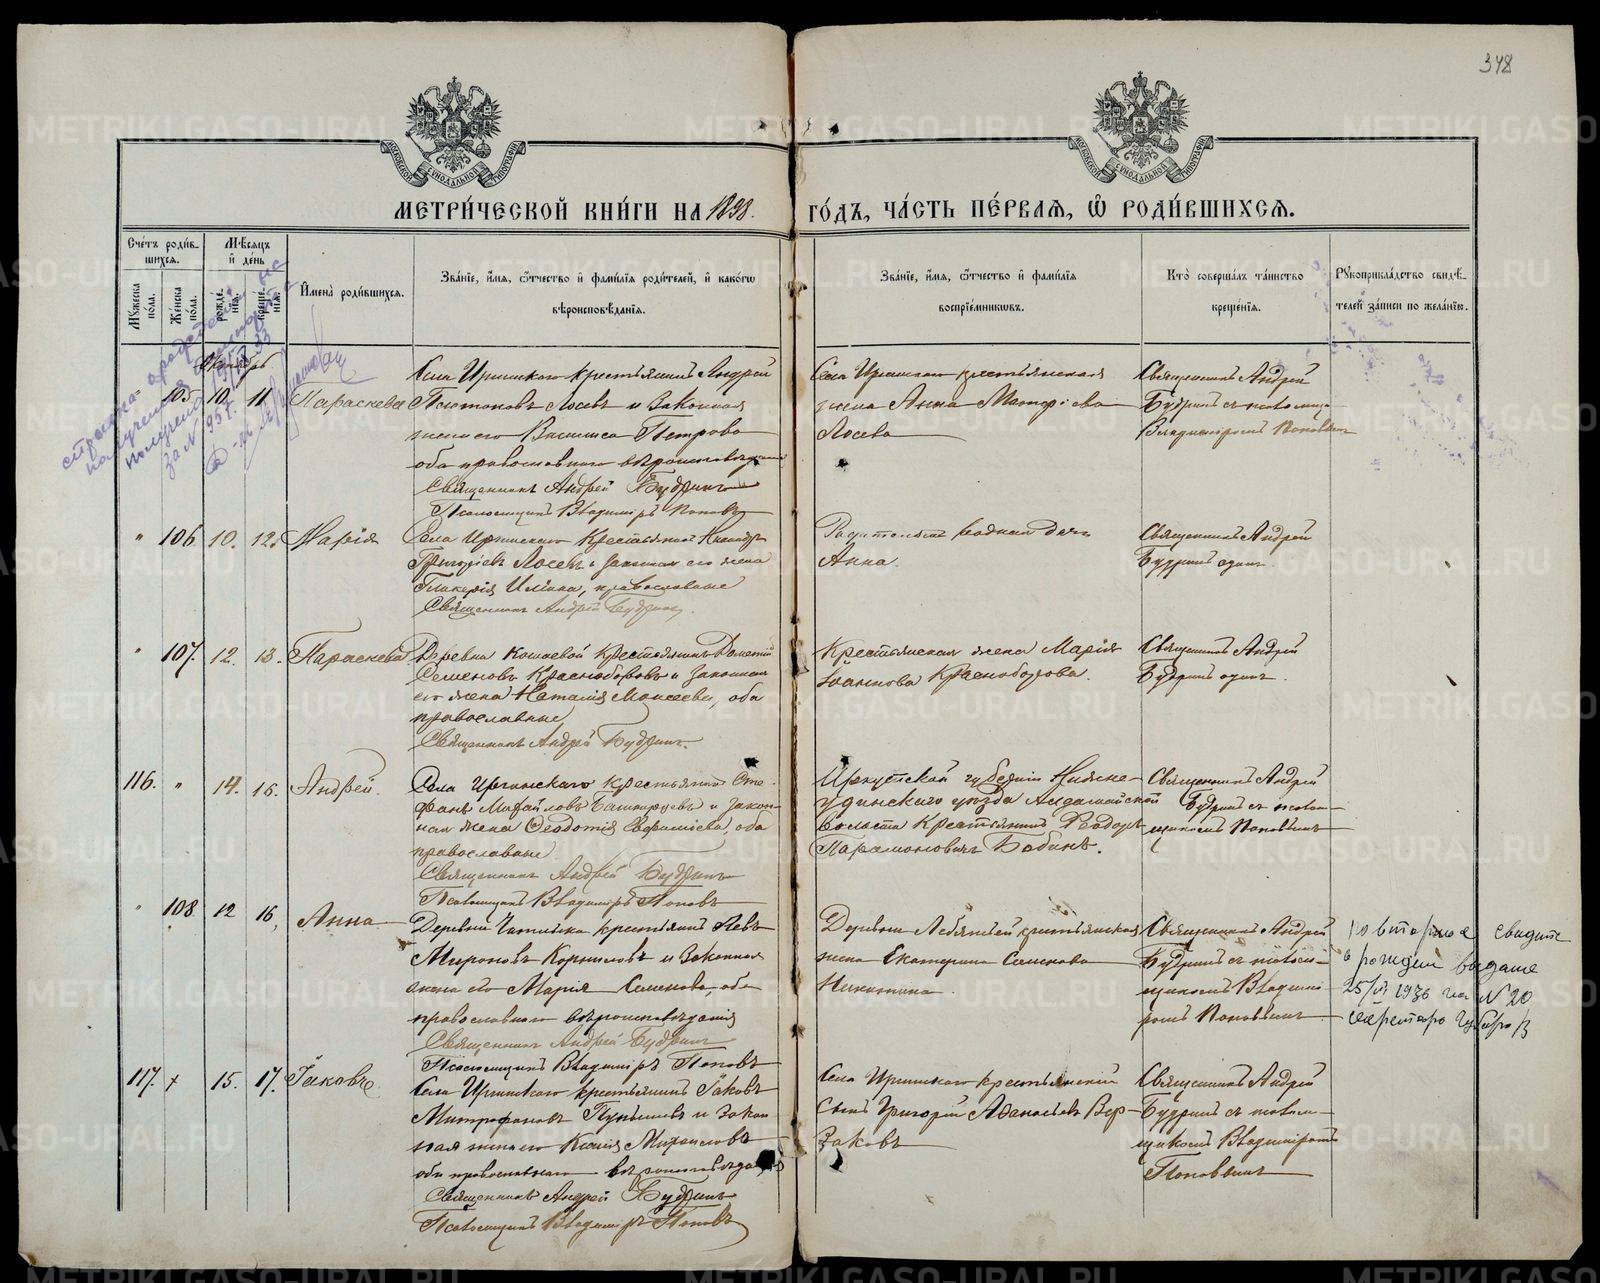 378
МЕТРИЧЕСКОЙ КНИГИ НА 1898. ГОДЪ, ЧАСТЬ ПЕРВАЯ, Ѡ РОДИВШИХСЯ.
Счетъ родив-
шихся.
Мѣсяцъ
и день
Мужеска
пола.
Женска
пола.
рожде-
нія.
креще-
нія.
Имена родившихся.
Званіе, имя, ѡтчество и фамилія родителей, и какогѡ
вѣроисповѣданія.
Званіе, имя, ѡтчество и фамилія
воспріемникѡвъ.
Кто совершалъ таинство
крещенія.
Рукоприкладство свидѣ-
телей записи по желанію.
Октябрь
105 10. 11. Параскева
Села Иргинского крестьянинъ Андрей
Платоновъ Лосевъ и законная
жена его Васлиса Петрова
оба православнаго вѣроисповѣданія
Священникъ Андрей Будринъ
Псаломщикъ Владиміръ Поповъ
Села Иргинского крестьянская
жена Анна
Лосева
Священникъ Андрей
Будринъ съ псаломщи-
Владиміромъ Поповымъ
" 106 10. 12. Марія
Села Иргинского Крестьянинъ
Григорьевъ Лосевъ и законная его жена
Гликерія Ильина, православные
Священникъ Андрей Будринъ.
родная дочь
Анна.
Священникъ Андрей
Будринъ одинъ.
" 107. 12. 13. Параскева
Деревни Кошаевой Крестьянинъ Дометій
Семеновъ Красноборовъ и законная
его жена Наталія Моисеева, оба
православные
Священникъ Андрей Будринъ.
Крестьянская жена Марія
Іоаннова Красноборова.
Священникъ Андрей
Будринъ одинъ.
116. " 14. 15. Андрей.
Села Иргинского Крестьянинъ Сте-
фанъ Михайловъ Башкирцевъ и закон-
ная жена Ѳеодотія, оба
православные
Священникъ Андрей Будринъ
Псаломщикъ Владиміръ Поповъ
Иркутской губерніи Нижне-
удинскаго уѣзда
волости Крестьянинъ Ѳеодоръ
Парамоновичъ Бабинъ.
Священникъ Андрей
Будринъ съ псалом-
щикомъ Поповымъ
" 108 12 16, Анна
Деревни крестьянинъ Левъ
Мироновъ Корниловъ и законная
жена его Марія Семенова, оба
православнаго вѣроисповѣданія
Священникъ Андрей Будринъ
Псаломщикъ Владиміръ Поповъ
Деревни крестьянская
жена Екатерина Семенова
Никитина.
Священникъ Андрей
Будринъ съ псалом-
щикомъ Владимі-
ромъ Поповымъ
повторное свидете
о рожден выдано
1936 за N 20
117. 15. 17. Іаковъ.
Села Иргинского крестьянинъ Іаковъ
Митрофановъ и закон-
ная жена его Ксенія
оба православнаго вѣроисповѣданія
Священникъ Андрей Будринъ
Псаломщикъ Владиміръ Поповъ
Села Иргинского крестьянскій
сынъ Григорій Аѳанасьевъ Вер-
заковъ
Священникъ Андрей
Будринъ съ псалом-
щикомъ Владиміромъ
Поповымъ
METRIKI.GASO-URAL.RU